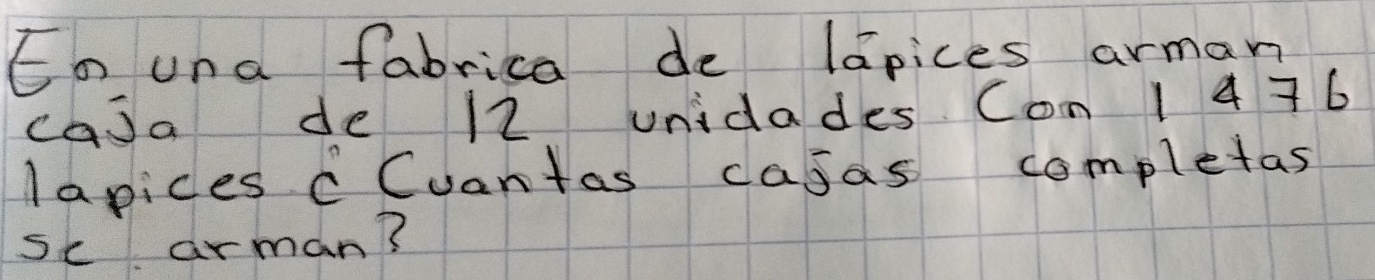 En una fabrica de lápices arman
caja de 12 unidades. Con 1 476
lapices ¿Cuantas cajas completas
se arman?